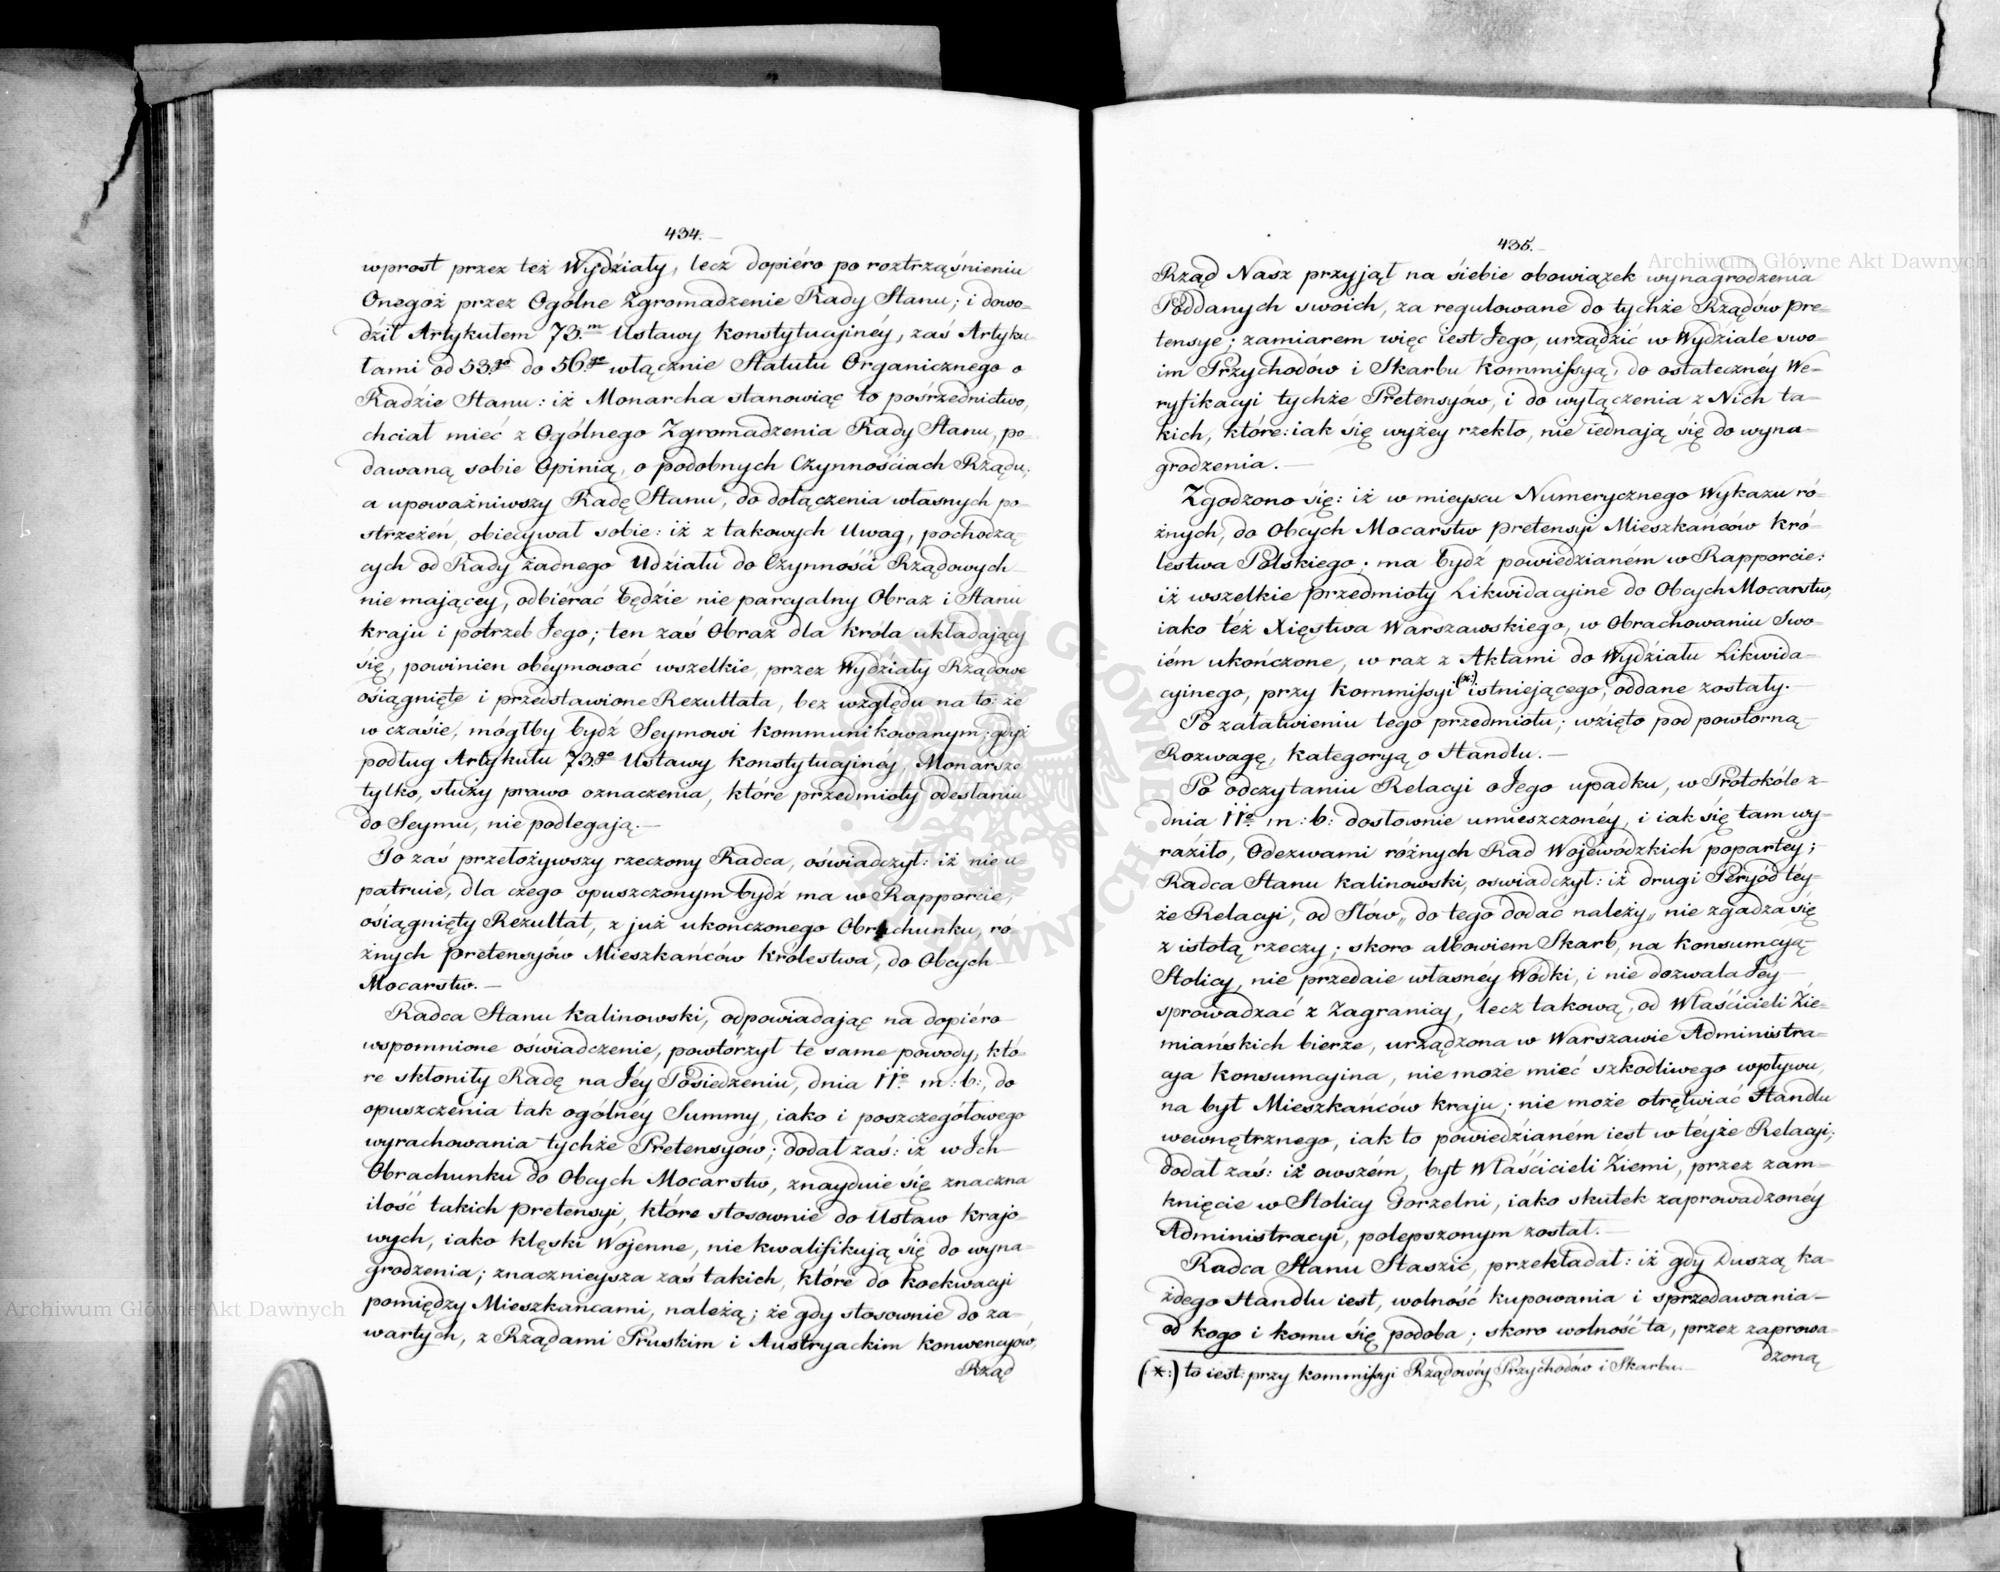 434.
wprost przez też Wydziały, lecz dopiéro po roztrząśnieniu
Onegoż przez Ogólne Zgromadzenie Rady Stanu; i dowo-
dził Artykułem 73.m Ustawy konstytucyinéy, zaś Artyku-
łami od 53.go do 56.go włącznie Statutu Organicznego o
Radzie Stanu: iż Monarcha stanowiąc to pośrzednictwo,
chciał mieć z Ogólnego Zgromadzenia Rady Stanu, po-
dawaną sobie Opinią, o podobnych Czynnościach Rządu;
a upoważniwszy Radę Stanu, do dołączenia własnych po-
strzeżeń, obiecywał sobie: iż z takowych Uwag, pochodzą-
cych od Rady żadnego Udziału do Czynności Rządowych
nie mającey, odbiérać będzie nie parcyalny Obraz i Stanu
kraju i potrzeb Jego; ten zaś Obraz dla króla układający
się, powinien obeymować wszelkie, przez Wydziały Rządowe
osiągnięte i przedstawione Rezultata, bez względu na to: że
w czasie, mógłby bydź Seymowi kommunikowanym; gdyż
podług Artykułu 73.go Ustawy konstytucyinéy, Monarsze
tylko, służy prawo oznaczenia, które przedmioty odesłaniu
do Seymu, nie podlegają.—
To zaś przełożywszy rzeczony Radca, oświadczył: iż nie u-
patruie, dla czego opuszczonym bydź ma w Rapporcie,
osiągnięty Rezultat, z już ukończonego Obrachunku, ró-
żnych pretensyów Mieszkańców królestwa, do Obcych
Mocarstw.—
Radca Stanu kalinowski, odpowiadając na dopiéro
wspomnione oświadczenie, powtórzył te same powody, któ-
re skłoniły Radę na Jéy Posiedzeniu, dnia 11o m: b:, do
opuszczenia tak ogólnéy Summy, iako i poszczegółowego
wyrachowania tychże Pretensyów; dodał zaś: iż w Ich
Obrachunku do Obcych Mocarstw, znayduie się znaczna
ilość takich pretensyi, które stosownie do Ustaw krajo-
wych, iako klęski Wojenne, nie kwalifikują się do wyna-
grodzenia; znacznieysza zaś takich, które do koekwacyi
pomiędzy Mieszkańcami, należą; że gdy stosownie do za-
wartych, z Rządami Pruskim i Austryackim konwencyów,
Rząd
435.
Rząd Nasz przyjął na siebie obowiązek wynagrodzenia
Poddanych swoich, za regulowane do tychże Rządów pre-
tensye; zamiarem więc iest Jego, urządzić w Wydziale swo-
im Przychodów i Skarbu kommissyą, do ostatecznéy We-
ryfikacyi tychże Pretensyów, i do wyłączenia z Nich ta-
kich, które: iak się wyżey rzekło, nie iednają się do wyna-
grodzenia.—
Zgodzono się: iż w mieyscu Numerycznego Wykazu ró-
żnych, do Obcych Mocarstw pretensyi Mieszkańców kró-
lestwa Polskiego, ma bydź powiedzianém w Rapporcie:
iż wszelkie przedmioty Likwidacyine do Obcych Mocarstw,
iako téż Xięstwa Warszawskiego, w Obrachowaniu Swo-
iém ukończone, w raz z Aktami do Wydziału Likwida-
cyinego, przy kommissyi (*:) istniejącego, oddane zostały.—
Po załatwieniu tego przedmiotu; wzięto pod powtorną
Rozwagę, kategoryą o Handlu.—
Po odczytaniu Relacyi o Jego upadku, w Protokóle z
dnia 11o m: b: dosłownie umieszczonéy, i iak się tam wy-
raziło, Odezwami różnych Rad Wojewódzkich popartey;
Radca Stanu kalinowski, oswiadczył: iż drugi Peryód téy-
że Relacyi, od Słów „ do tego dodać należy „ nie zgadza się
z istotą rzeczy; skoro albowiem Skarb, na konsumcyją
Stolicy, nie przedaie własnéy Wódki, i nie dozwala Jéy
sprowadzać z Zagranicy, lecz takową, od Właścicieli Zie-
miańskich bierze, urządzona w Warszawie Administra-
cya konsumcyina, nie może mieć szkodliwego wpływu,
na byt Mieszkańców kraju; nie może otrętwiać Handlu
wewnętrznego, iak to powiedzianém iest w téyże Relacyi;
dodał zaś: iż owszém, byt Właścicieli Ziemi, przez zam-
knięcie w Stolicy Gorzelni, iako skutek zaprowadzonéy
Administracyi, polepszonym został.—
Radca Stanu Staszic, przekładał: iż gdy Duszą ka-
żdego Handlu iest, wolność kupowania i sprzedawania—
od kogo i komu się podoba; skoro wolność ta, przez zaprowa-
dzoną
(*:) to iest: przy kommissyi Rządowéy Przychodów i Skarbu.—
Archiwum Główne Akt Dawnych
Archiwum Główne Akt Dawnych
ARCHIWUM GŁÓWNE AKT DAWNYCH